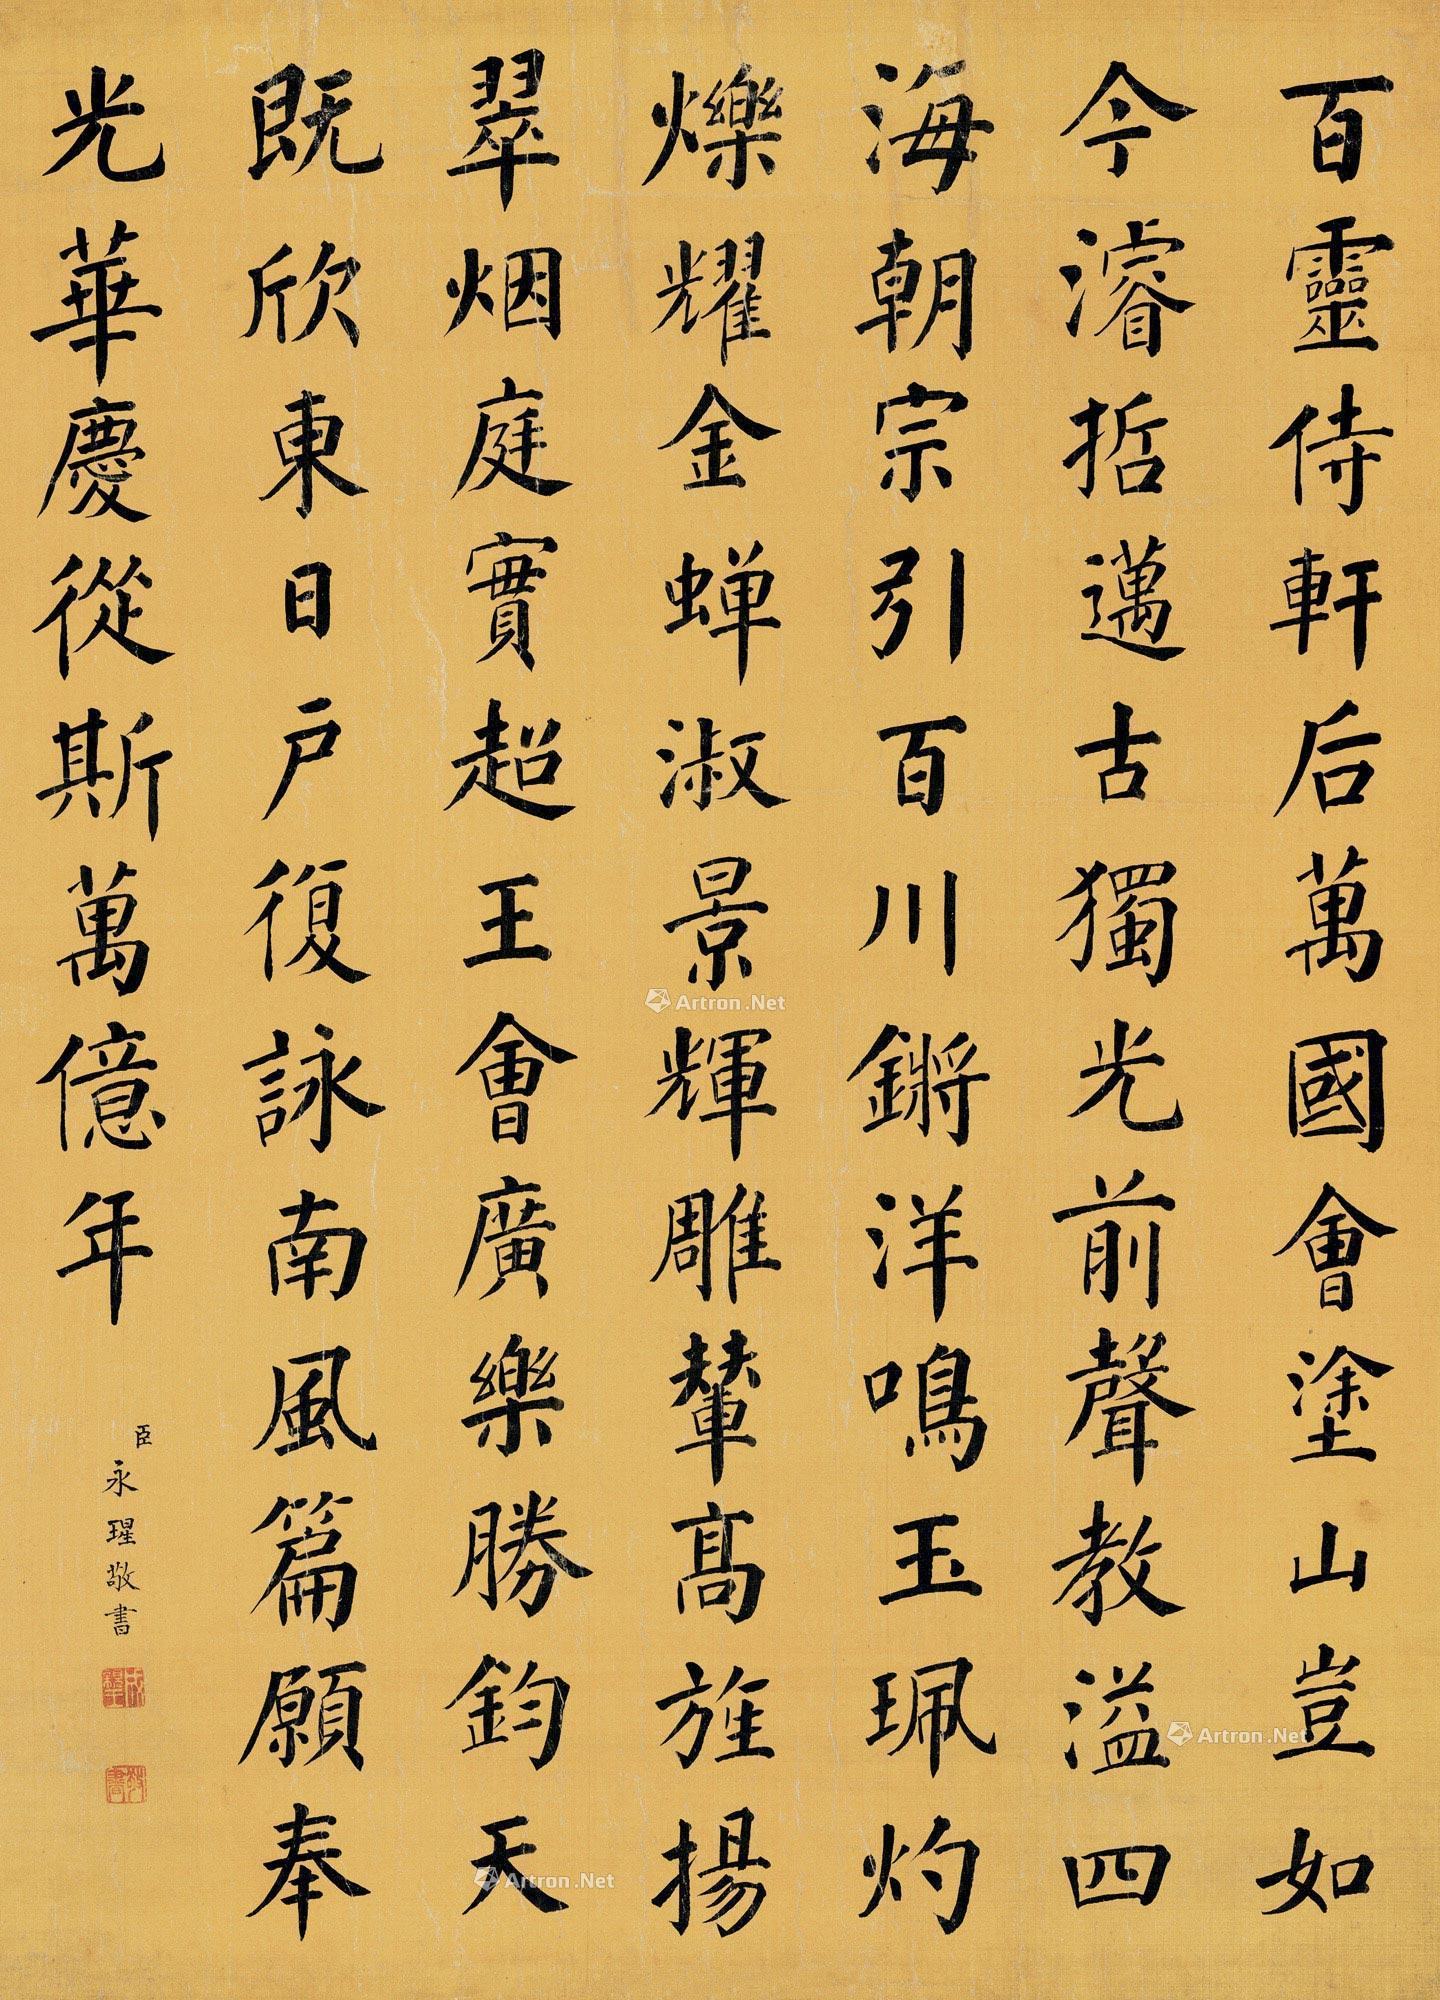 百靈侍軒后萬國會塗山豈如
今濬哲邁古獨光前聲教溢四
海朝宗引百川鏘洋鳴玉珮灼
爍耀金蟬淑景輝雕輦高旌揚
翠烟庭實超王會廣樂勝鈞天
既欣東日戶復詠南風篇願奉
光華慶從斯萬億年
臣永瑆敬書
Artron.Net
Artron.Net
Artron.Net